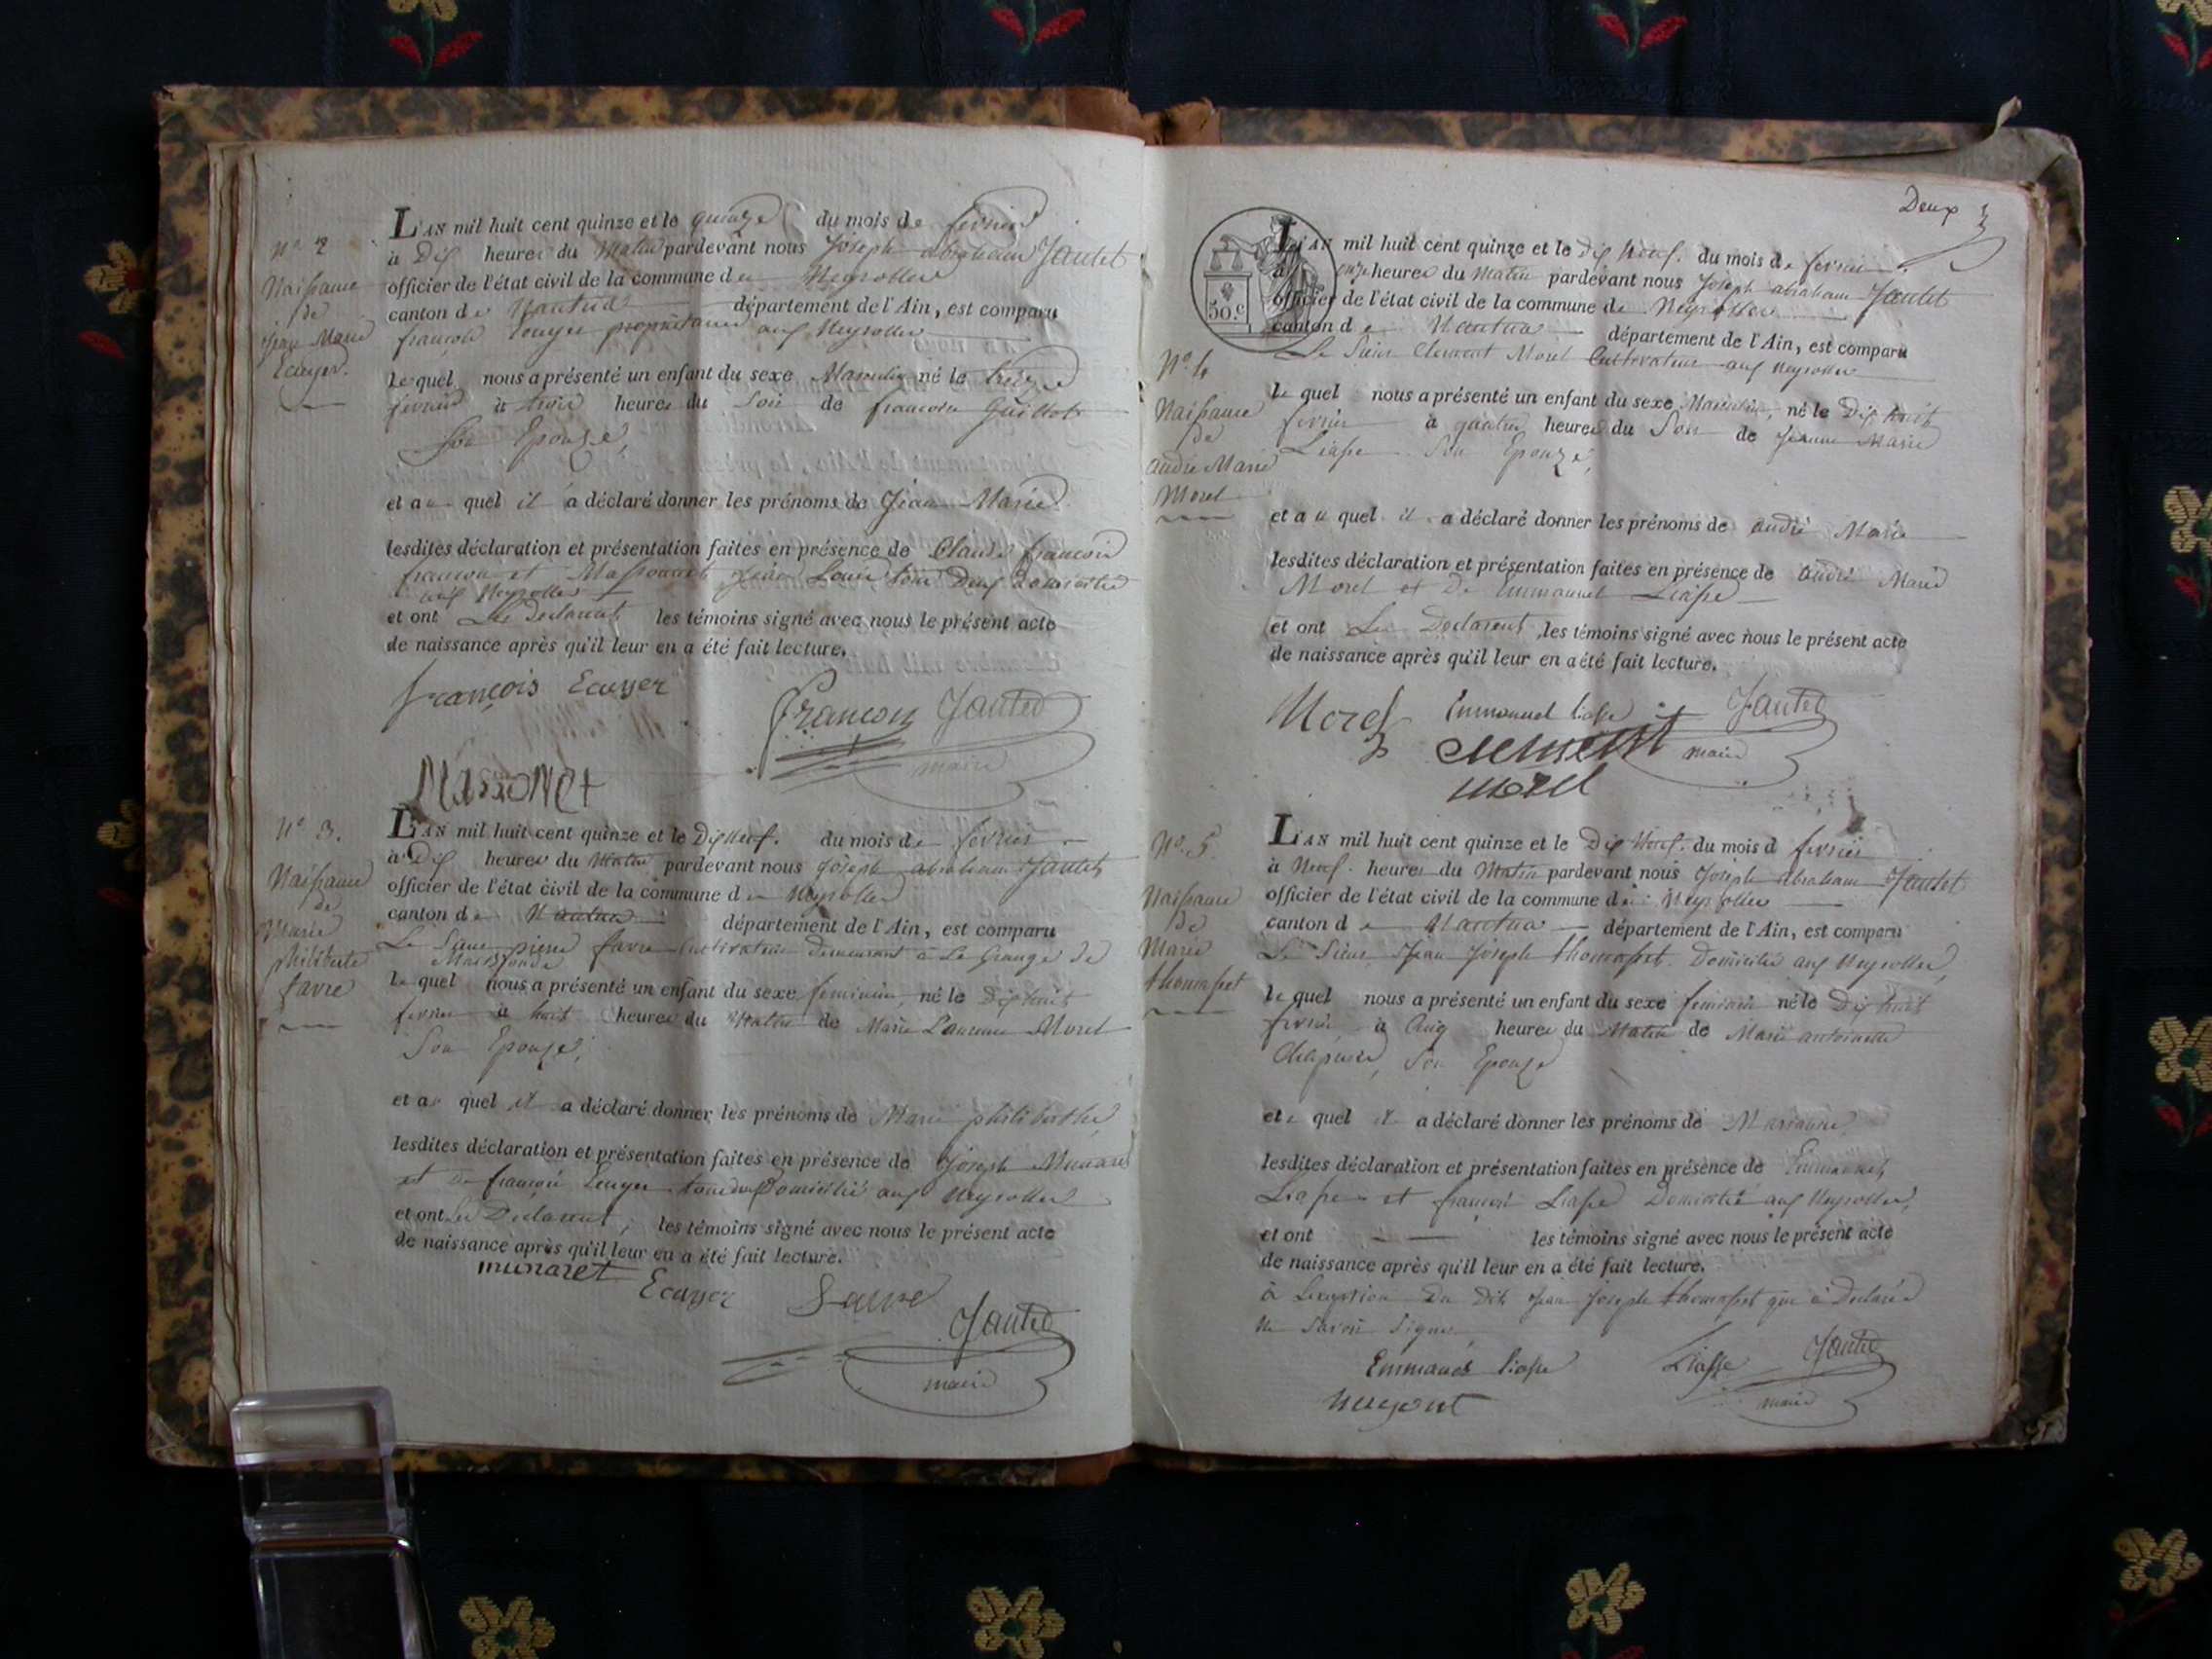 N.º 2
Naissance
de
Jean Marie
Ecuyer.
L'AN mil huit cent quinze et le quinze du mois de fevrier
à Dix heures du Matin pardevant nous Joseph abraham Jantet
officier de l'état civil de la commune de Neyrolles
canton de Nantua département de l'Ain, est comparu
françois Ecuyer propriétaire aux Neyrolles
Lequel nous a présenté un enfant du sexe Masculin né le treize
fevrier à trois heures du Soir de françoise Guillot
Son Epouze,
et au quel il a déclaré donner les prénoms de Jean Marie
lesdites déclaration et présentation faites en présence de Claude françois
françon et Massonnet Jean Louis tous Deux Domicilié
aux Neyrolles
et ont Les Declarent les témoins signé avec nous le présent acte
de naissance après qu'il leur en a été fait lecture.
françois Ecuyer
françon Jantet
maire
Massonet
N.º 3.
Naissance
de
Marie
philiberte
favre
L'AN mil huit cent quinze et le Dix Neuf. du mois de fevrier
à Dix heures du Matin pardevant nous Joseph abraham Jantet
officier de l'état civil de la commune de Neyrolles
canton de Nantua département de l'Ain, est comparu
Le Sieur pierre favre Cultivateur demeurant à La Grange de
le quel nous a présenté un enfant du sexe feminin, né le Dix huit
fevrier à huit heures du Matin de Marie Laurence Morel
Son Epouze;
et au quel il a déclaré donner les prénoms de Marie philiberthe,
lesdites déclaration et présentation faites en présence de Joseph Munaret
et de françois Ecuyer tous deux Domicilié aux Neyrolles
et ont Les Declarent, les témoins signé avec nous le présent acte
de naissance après qu'il leur en a été fait lecture.
munaret Ecuyer favre
Jantet
maire
Deux
50.c
N.º 4
Naissance
de
andré Marie
Morel
L'AN mil huit cent quinze et le Dix Neuf. du mois de fevrier
à onze heures du Matin pardevant nous Joseph abraham Jantet
officier de l'état civil de la commune de Neyrolles
canton de Nantua département de l'Ain, est comparu
Le Sieur Clement Morel Cultivateur aux Neyrolles
le quel nous a présenté un enfant du sexe Masculin, né le Dix huit
fevrier à quatre heures du Soir de Jeanne Marie
Liasse Son Epouze,
et au quel il a déclaré donner les prénoms de andré Marie
lesdites déclaration et présentation faites en présence de andré Marie
Morel et de Emmanuel Liasse
et ont Les Declarent, les témoins signé avec nous le présent acte
de naissance après qu'il leur en a été fait lecture.
Morel Emmanuel liasse Jantet
clement maire
morel
N.º 5.
Naissance
de
Marie
thomasset
L'AN mil huit cent quinze et le Dix Neuf. du mois d fevrier
à Neuf. heures du Matin pardevant nous Joseph abraham Jantet
officier de l'état civil de la commune de Neyrolles
canton de Nantua département de l'Ain, est comparu
Le Sieur Jean Joseph thomasset Domicilié aux Neyrolles,
le quel nous a présenté un enfant du sexe feminin né le Dix huit
fevrier à Cinq heures du Matin de Marie antoinette
Son Epouze
et quel il a déclaré donner les prénoms de
lesdites déclaration et présentation faites en présence de Emmanuel
Liasse et françois Liasse Domicilié aux Neyrolles,
et ont les témoins signé avec nous le présent acte
de naissance après qu'il leur en a été fait lecture.
à Lexception du Dit Jean Joseph thomasset que à Declaré
ne Savoir Signer
Emmanuel liasse Liasse Jantet
maire